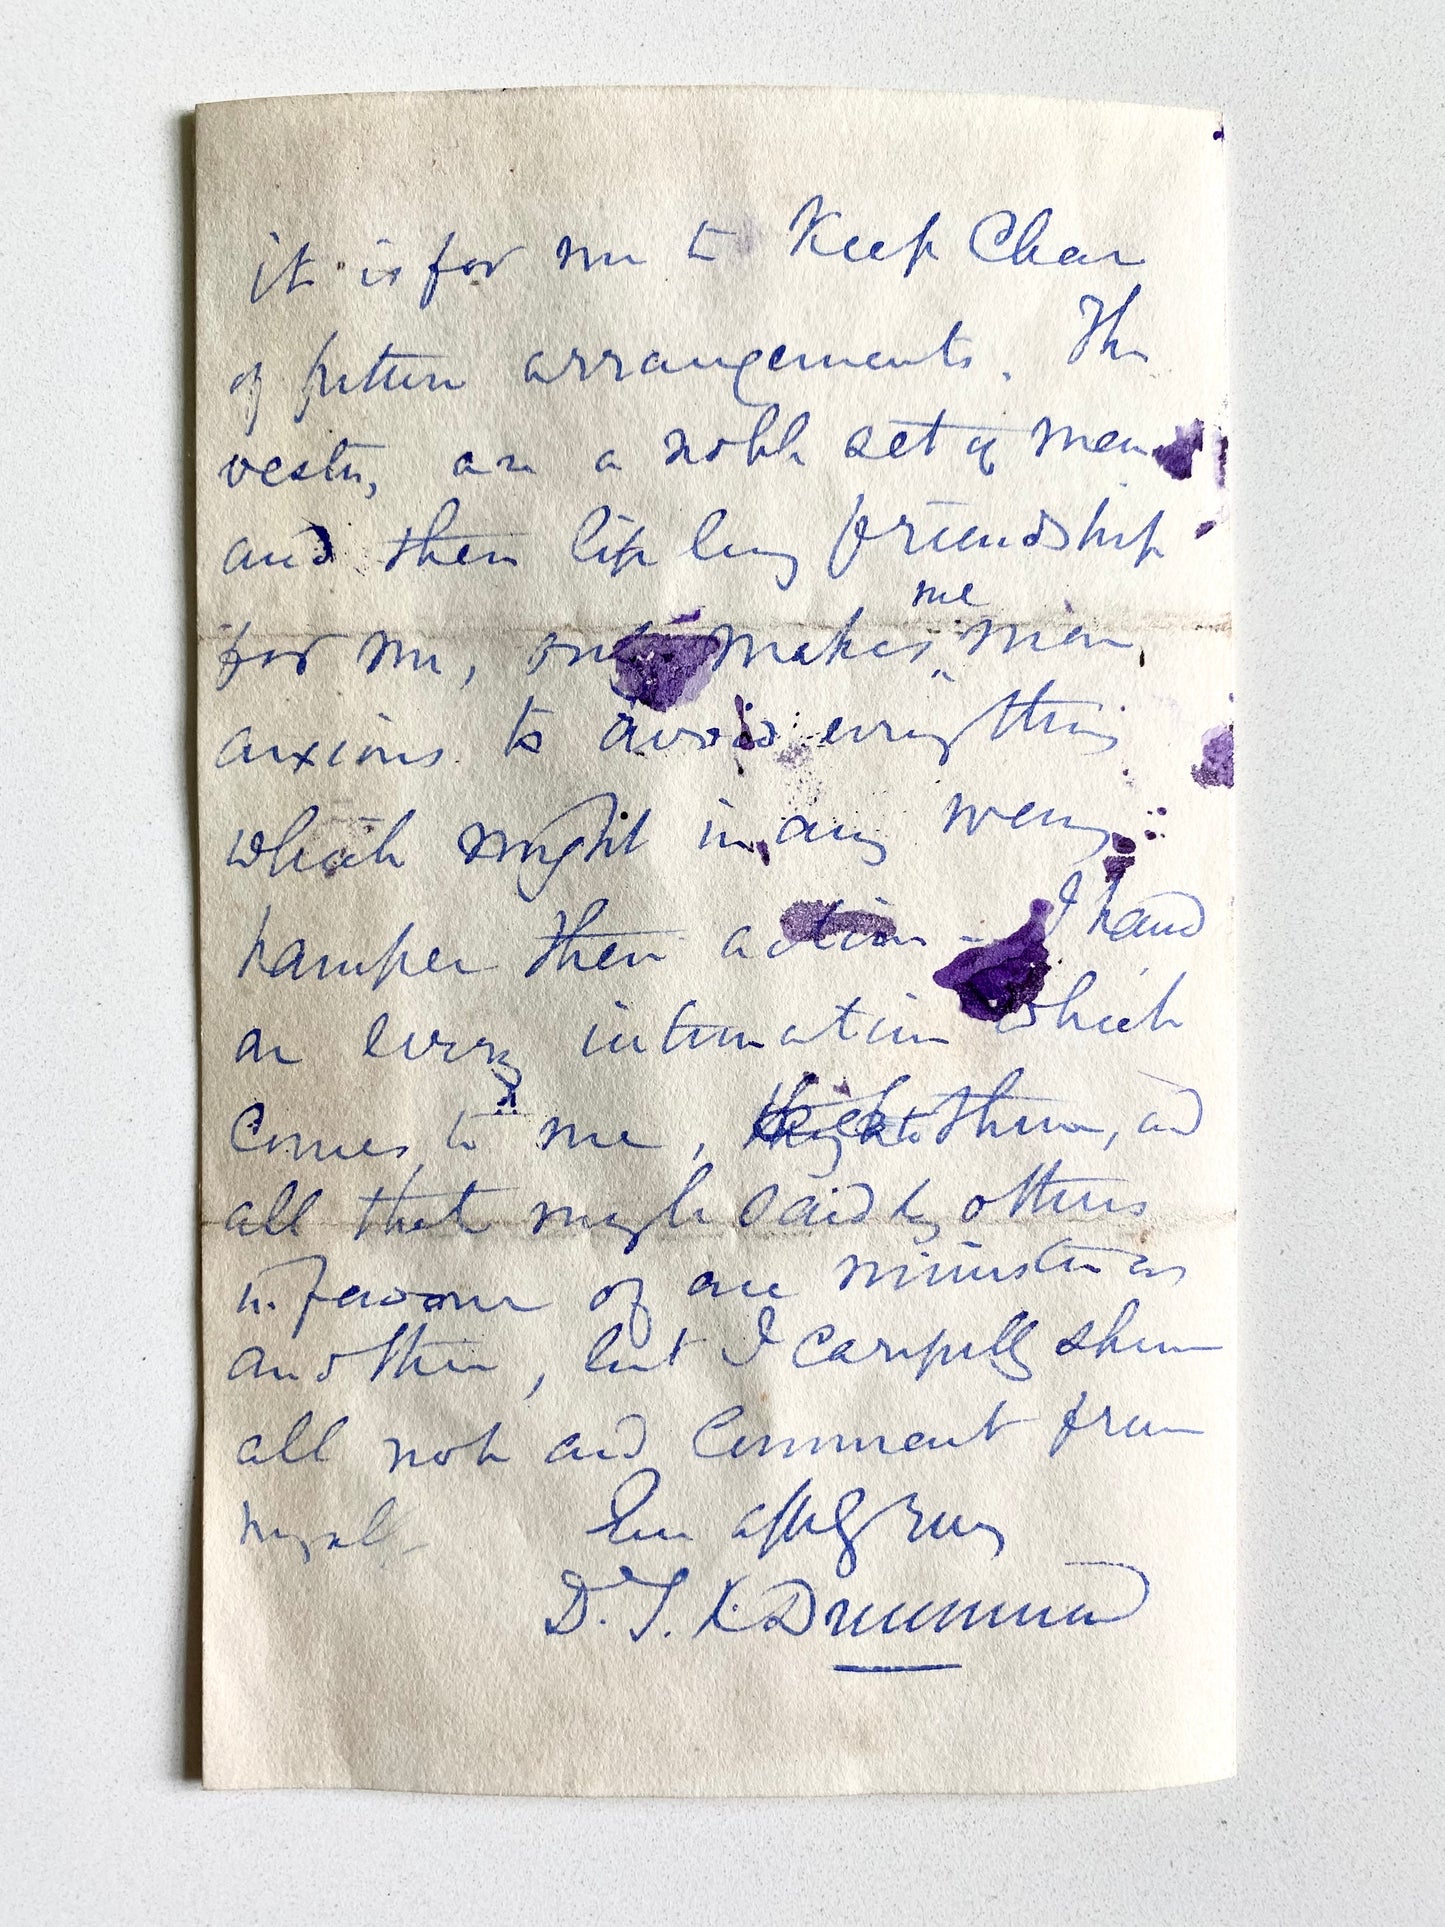 it is for me to Keep Clear
of future arrangements. The
vestry are a noble set of men
and their life long friendship
for me, only makes me more
anxious to avoid everything
which might in any way
hamper their action - I hand
on every intimation which
Comes to me, to them, and
all that might said by others
in favour of one minister or
another, but I carefully shun
all note and Comment from
myself. Ever affly yours
D. T. K. Drummond